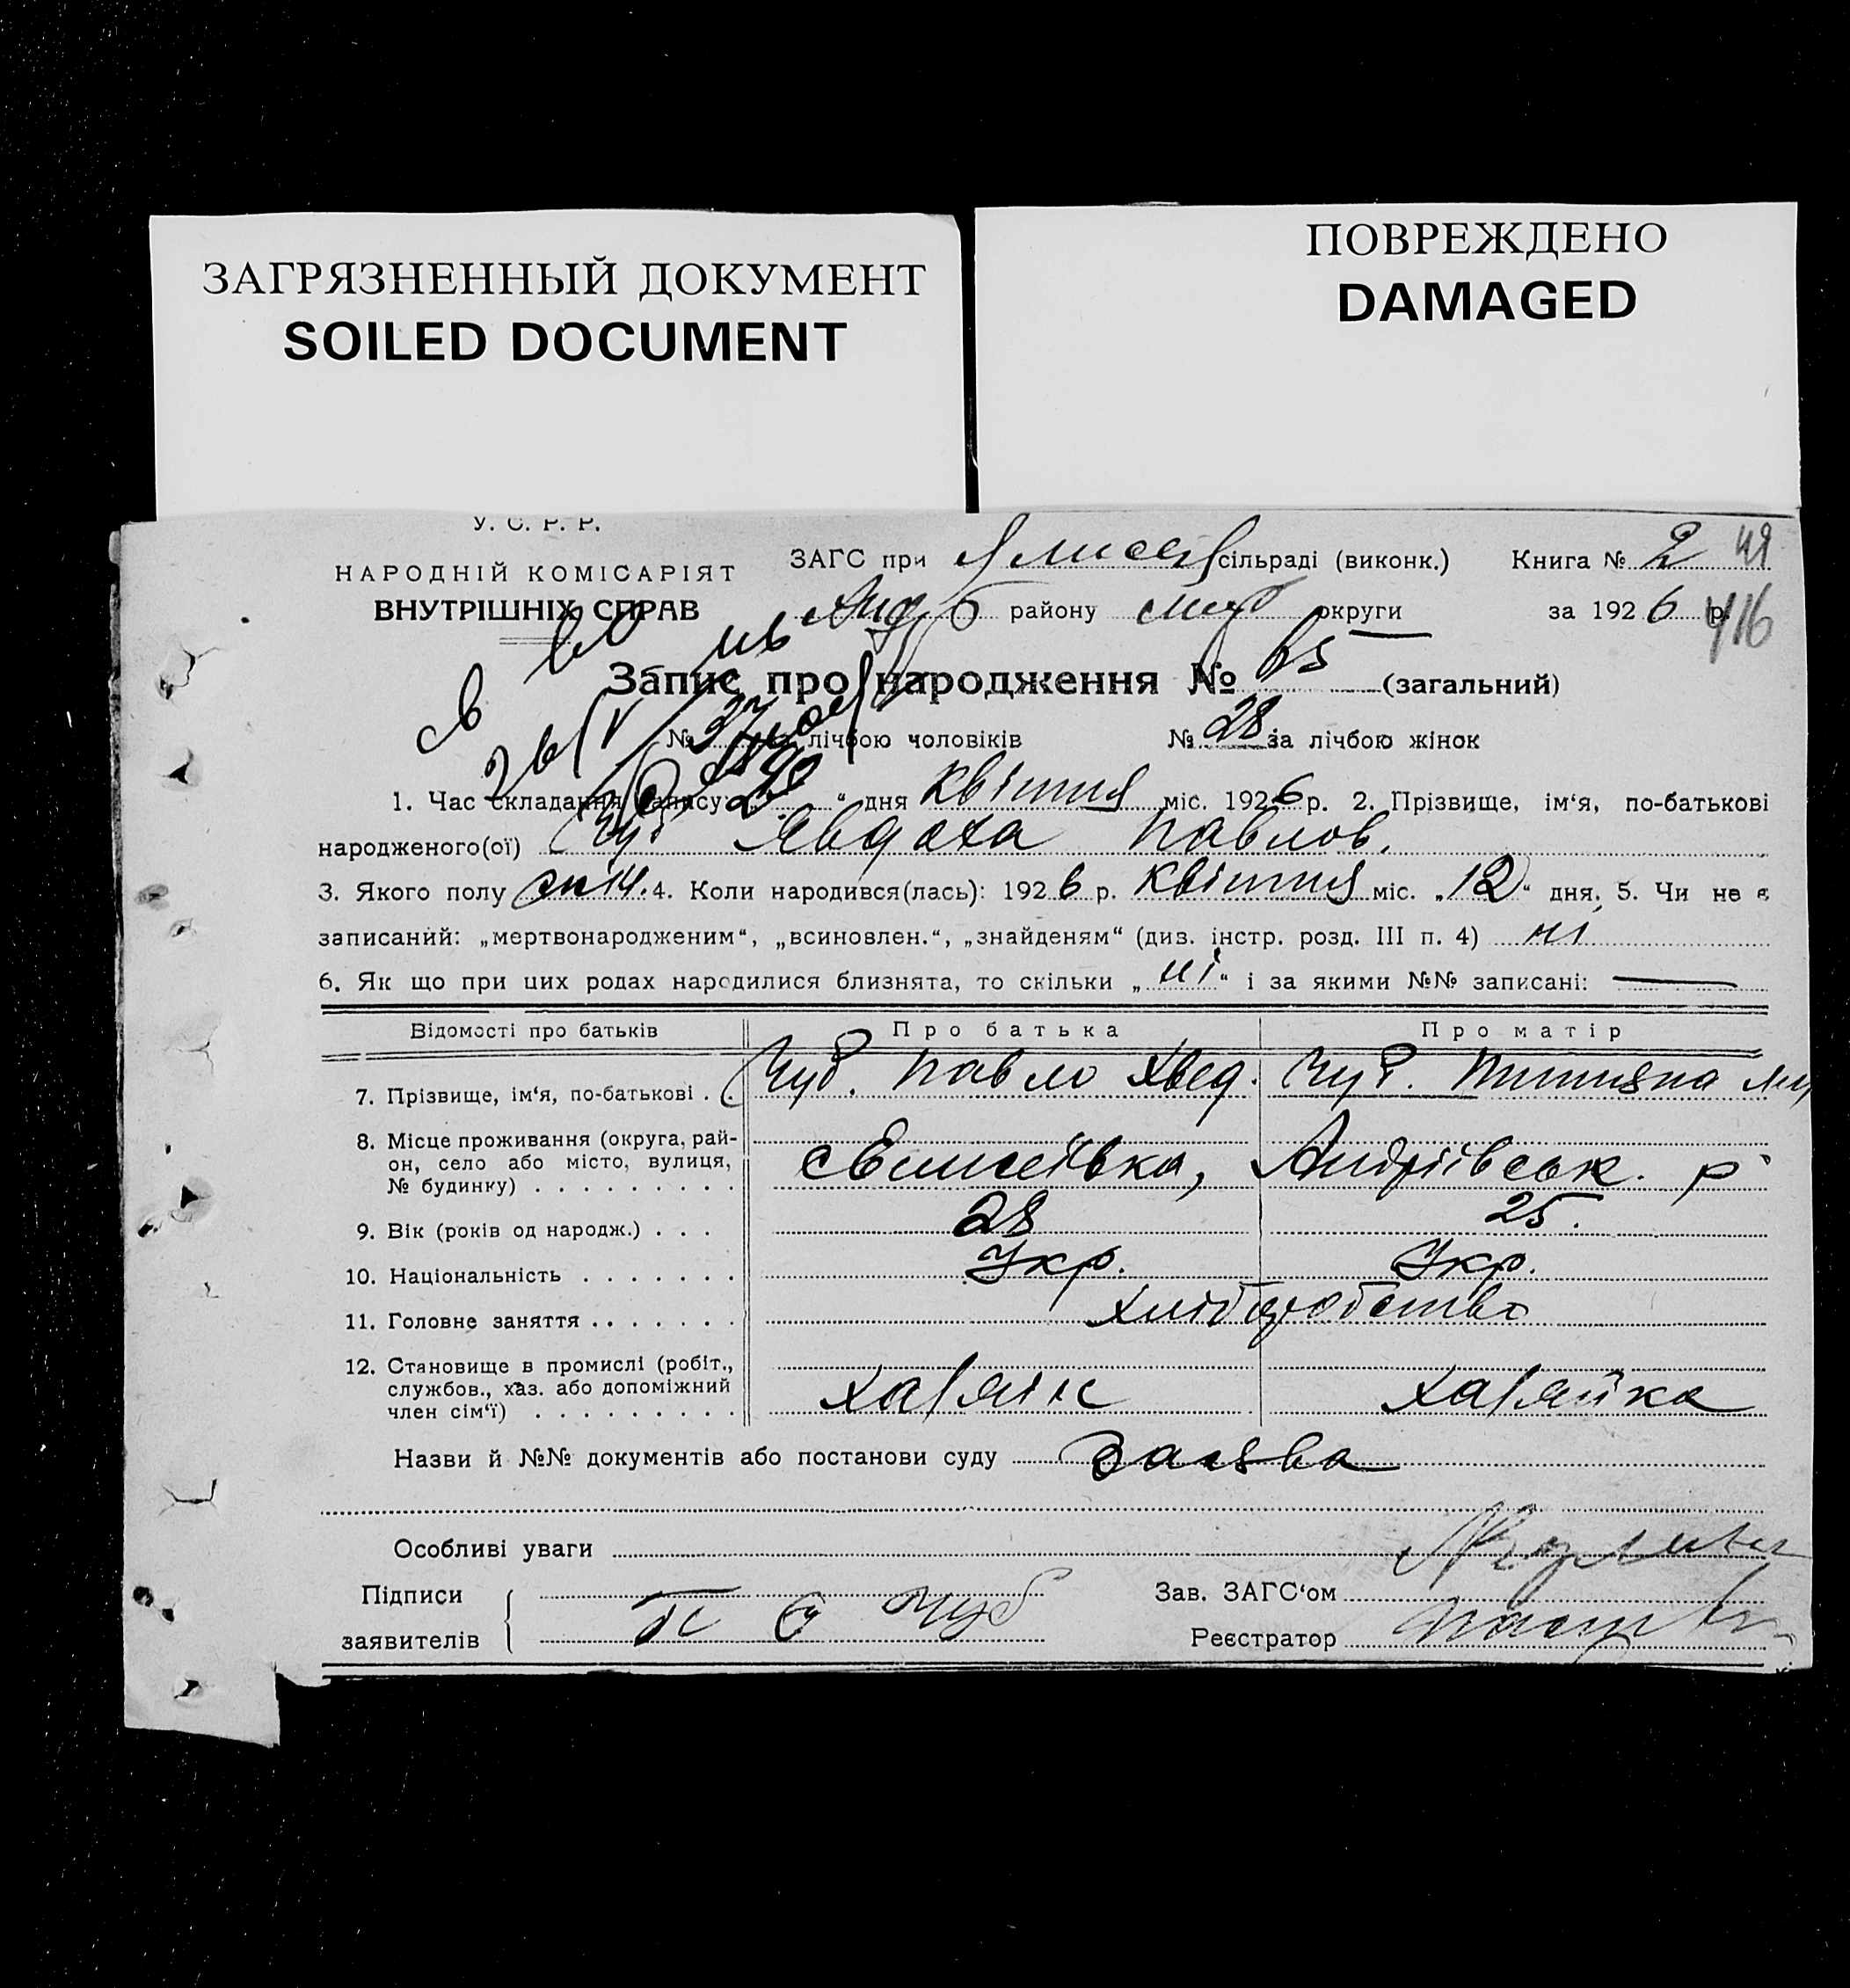 ЗАГРЯЗНЕННЫЙ ДОКУМЕНТ
SOILED DOCUMENT
ПОВРЕЖДЕНО
DAMAGED
У. С. Р. Р.
НАРОДНІЙ КОМІСАРІЯТ
ВНУТРІШНІХ СПРАВ
ЗАГС при сільраді (виконк.) Книга № 2 49
району округи за 1926 р. 416
Запис про народження № 65 (загальний)
№ 37 за лічбою чоловіків № 28 за лічбою жінок
1. Час складання запису: „ “ дня квітня міс. 1926 р. 2. Прізвище, ім‘я, по-батькові
народженого(ої) Чуб Явдоха Павлов.
3. Якого полу жін. 4. Коли народився(лась): 1926 р. квітня міс. „12“ дня. 5. Чи не є
записаний: „мертвонародженим“, „всиновлен.“, „знайденям“ (див. інстр. розд. III п. 4) ні
6. Як що при цих родах народилися близнята, то скільки „ні“ і за якими №№ записані: —
Відомості про батьків Про батька Про матір
7. Прізвище, ім‘я, по-батькові . . Чуб. Павло Хвед. Чуб.
8. Місце проживання (округа, рай-
он, село або місто, вулиця,
№ будинку) . . . . . . . . . с Елисеївка, Андріївськ. р
9. Вік (років од народж.) . . . 28 25.
10. Національність . . . . . . . Укр. Укр.
11. Головне заняття . . . . . . . хліборобство
12. Становище в промислі (робіт.,
службов., хаз. або допоміжний
член сім‘ї) . . . . . . . . . хазяін хазяйка
Назви й №№ документів або постанови суду Заява
Особливі уваги
Підписи
заявителів П Ф Чуб
Зав. ЗАГС‘ом
Реєстратор